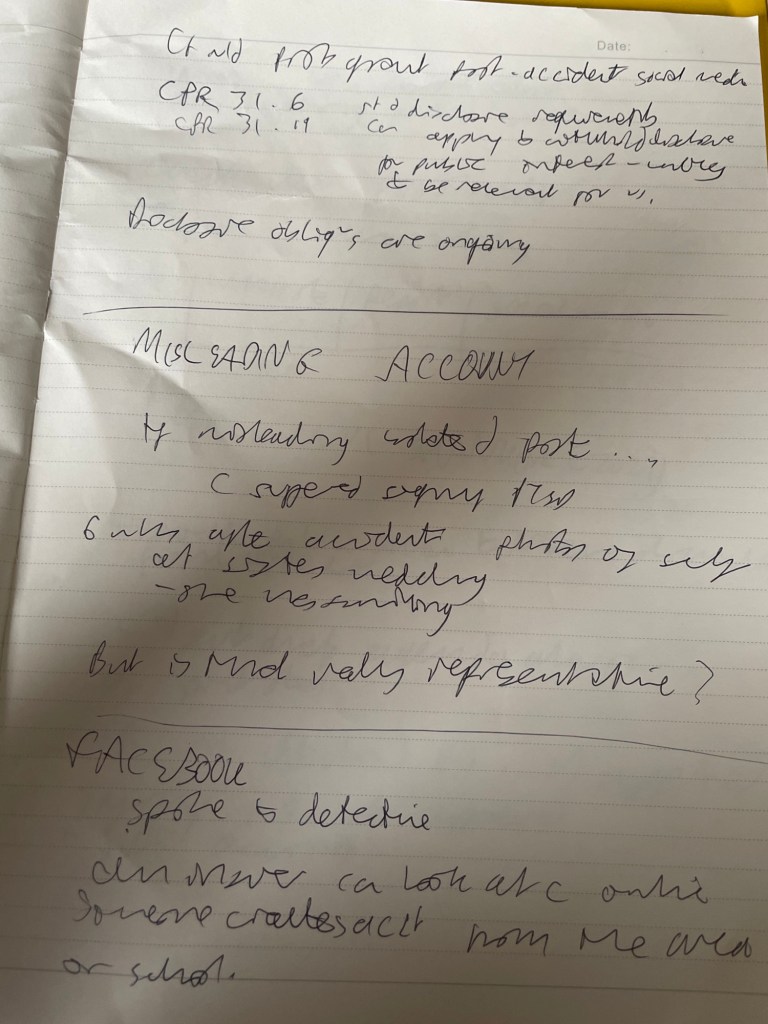 Date:
post-accident social media
CPR 31.6 std disclosure requirements
CPR 31.19 can apply to withhold disclosure
for public interest - unlikely
to be relevant for us.
Disclosure oblig's are ongoing
MISLEADING ACCOUNT
If misleading isolated post ...,
C suffered PTSD
6 after accident photos of self
at sister's wedding
- she was smiling
But is that really representative?
FACEBOOK
spoke to detective
can look at C online
Someone creates acct from the area
or school.